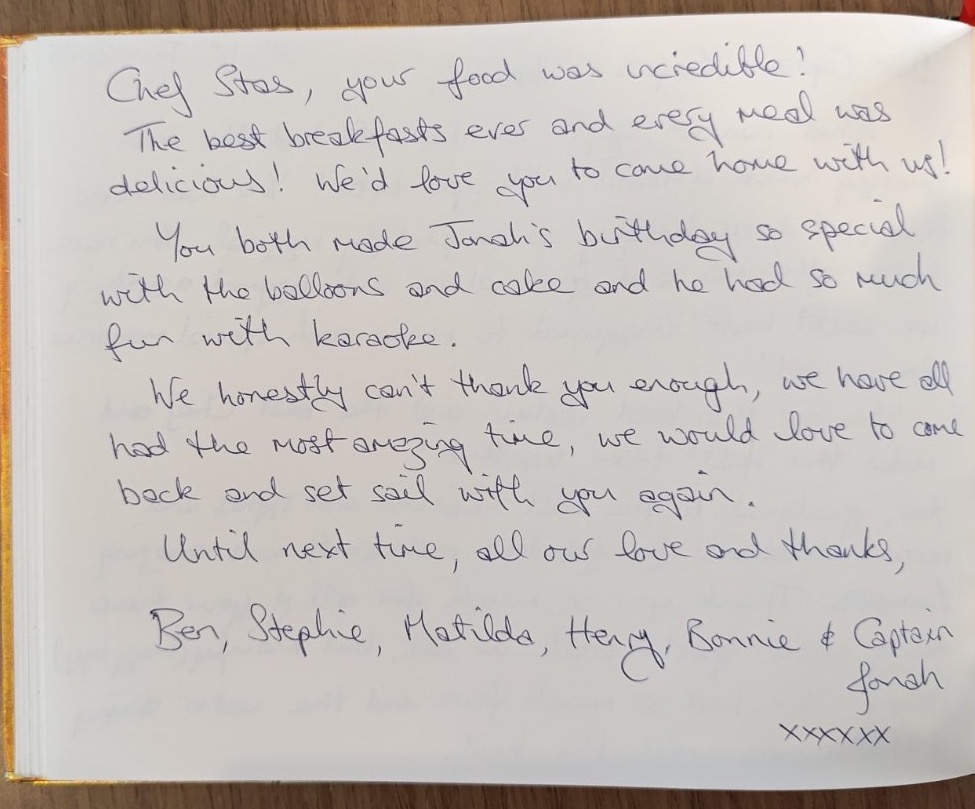 Chef Stas, your food was incredible!
The best breakfasts ever and every meal was
delicious! We'd love you to come home with us!
You both made Jonah's birthday so special
with the balloons and cake and he had so much
fun with karaoke.
We honestly can't thank you enough, we have all
had the most amazing time, we would love to come
back and set sail with you again.
Until next time, all our love and thanks,
Ben, Stephie, Matilda, Henry, Bonnie & Captain
Jonah
xxxxxx